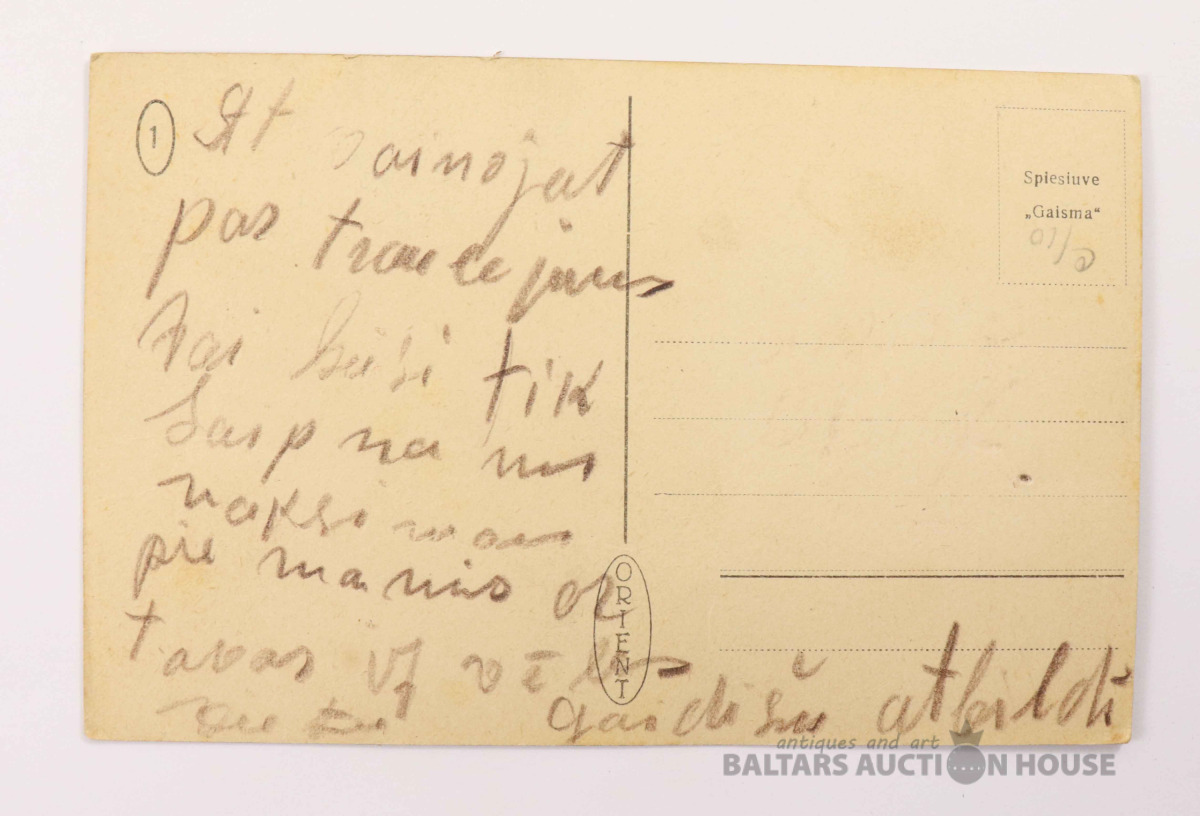 1
At vainojat
par traucejums
vai būsi tik
laipna un
naksi man
pie manis oz
tavas vēlos
gaidišu atbildi
Spiestuve
„Gaisma“
ORIENT
antiques and art
BALTARS AUCTION HOUSE